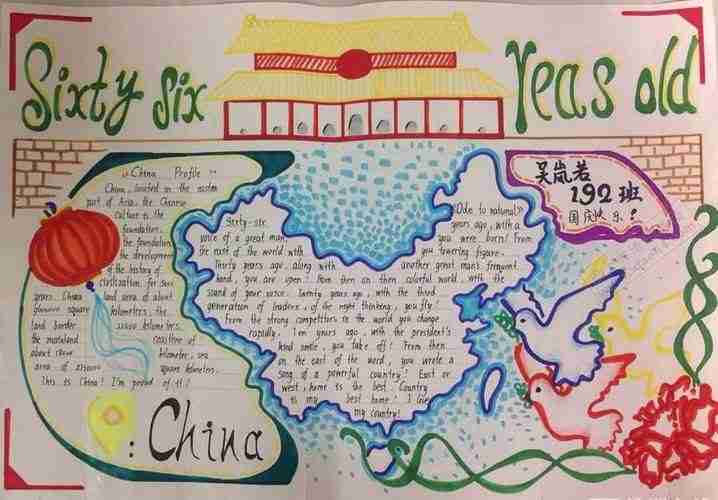 Sixty six Yeas old
《China Profile》
China, located in the easten
part of Asia, the Chinese
culture is the
foundation,
the foundation
the development
of the history of
civilization, for
years. China land area of about
square kilometers, the
land border kilometers.
the mainland coastline of
about kilometer, sea
area of square kilometers.
This is China! I'm proud of it!
: China
《Ode to national》
Sixty-six years ago, with a
voice of a great man, you were born! From
the east of the world with you towering figure.
Thirty years ago, along with another great man's frequent
hand, you are open! From then on then colorful world, with the
sound of your voice. Twenty years ago, with the third
generation of leaders, of the night thinking, you fly!
From the strong competitors in the world you change
rapidly. Ten years ago, with the president's
kind smile, you take off! From then
on the east of the word, you wrote a
song of a powerful country! East or
west, home is the best. Country
is my best home! I love
my country!
吴岚若
192班
国庆快乐!